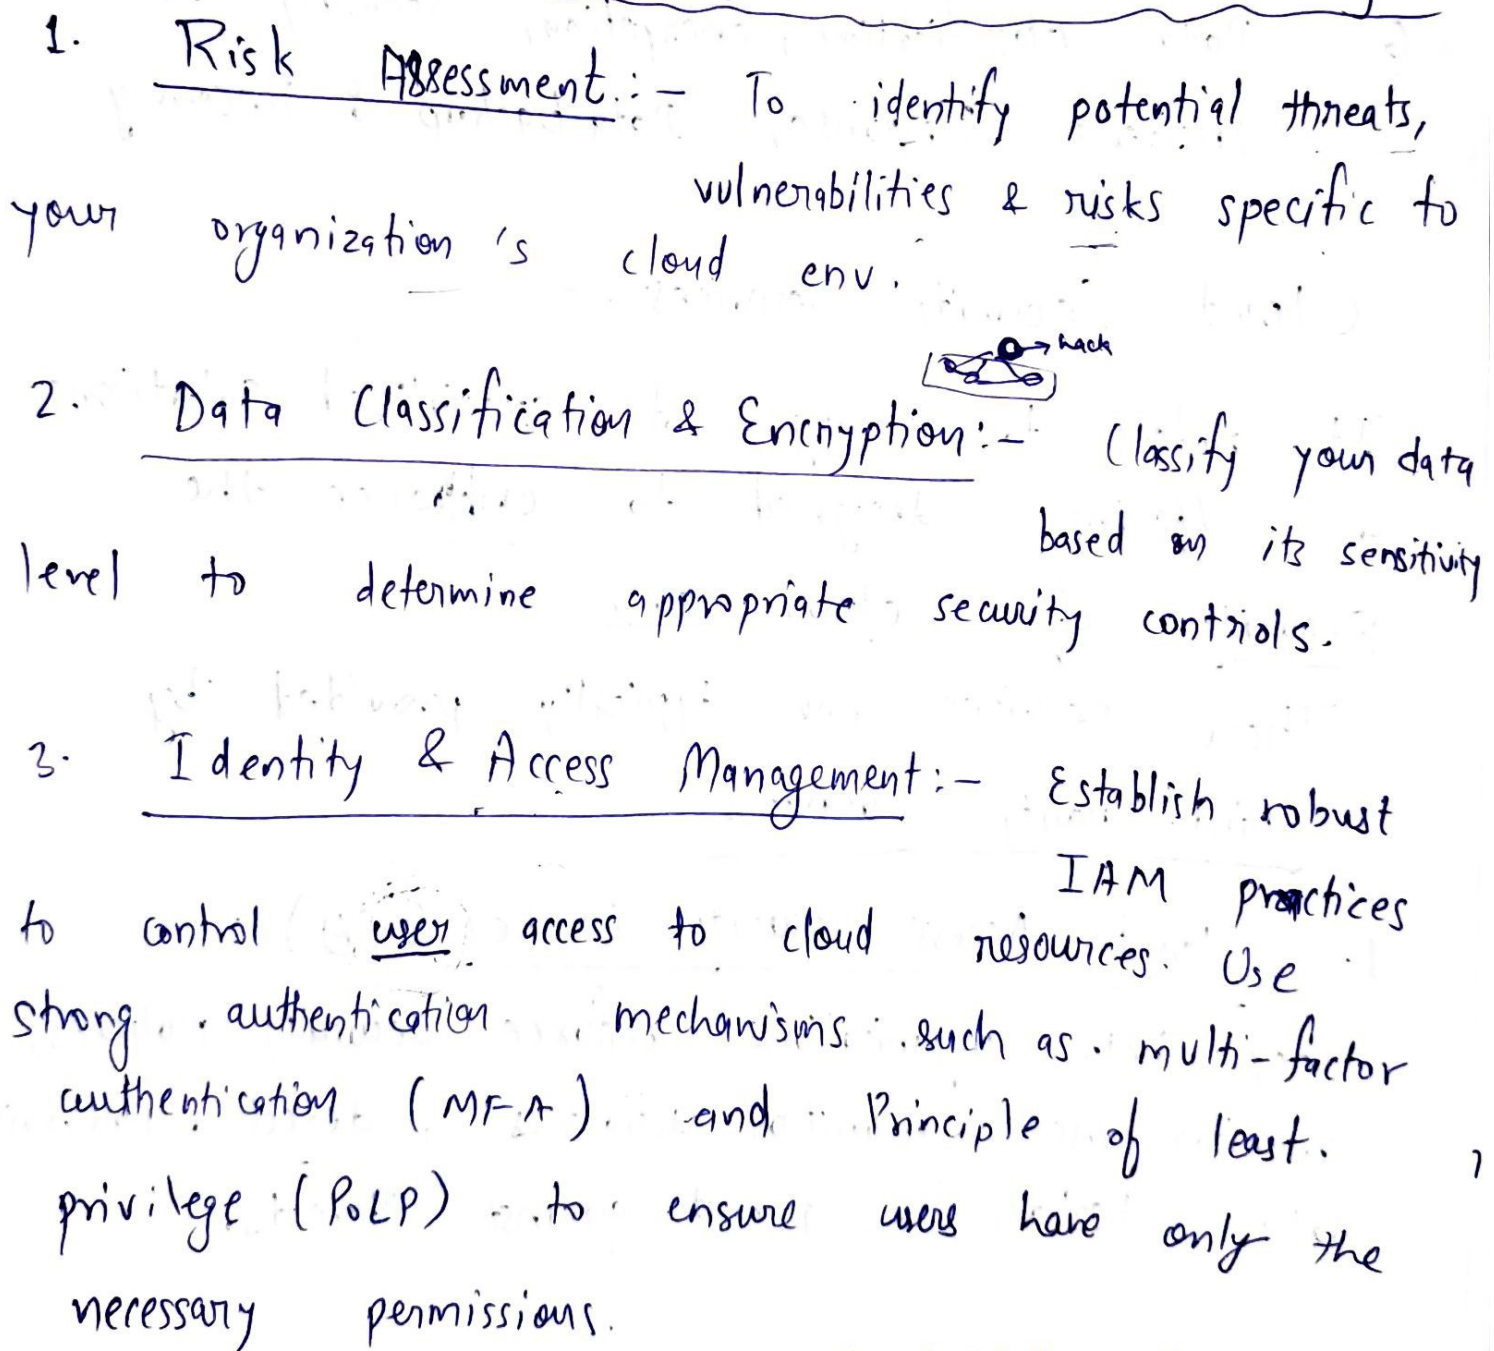 1. Risk Assessment :- To identify potential threats,
vulnerabilities & risks specific to
your organization's cloud env.
hack
2. Data Classification & Encryption :- Classify your data
based on its sensitivity
level to determine appropriate security controls.
3. Identity & Access Management :- Establish robust
IAM practices
to control user access to cloud resources. Use
strong authentication mechanisms such as multi-factor
authentication (MFA) and Principle of least
privilege (PoLP) to ensure users have only the
necessary permissions.